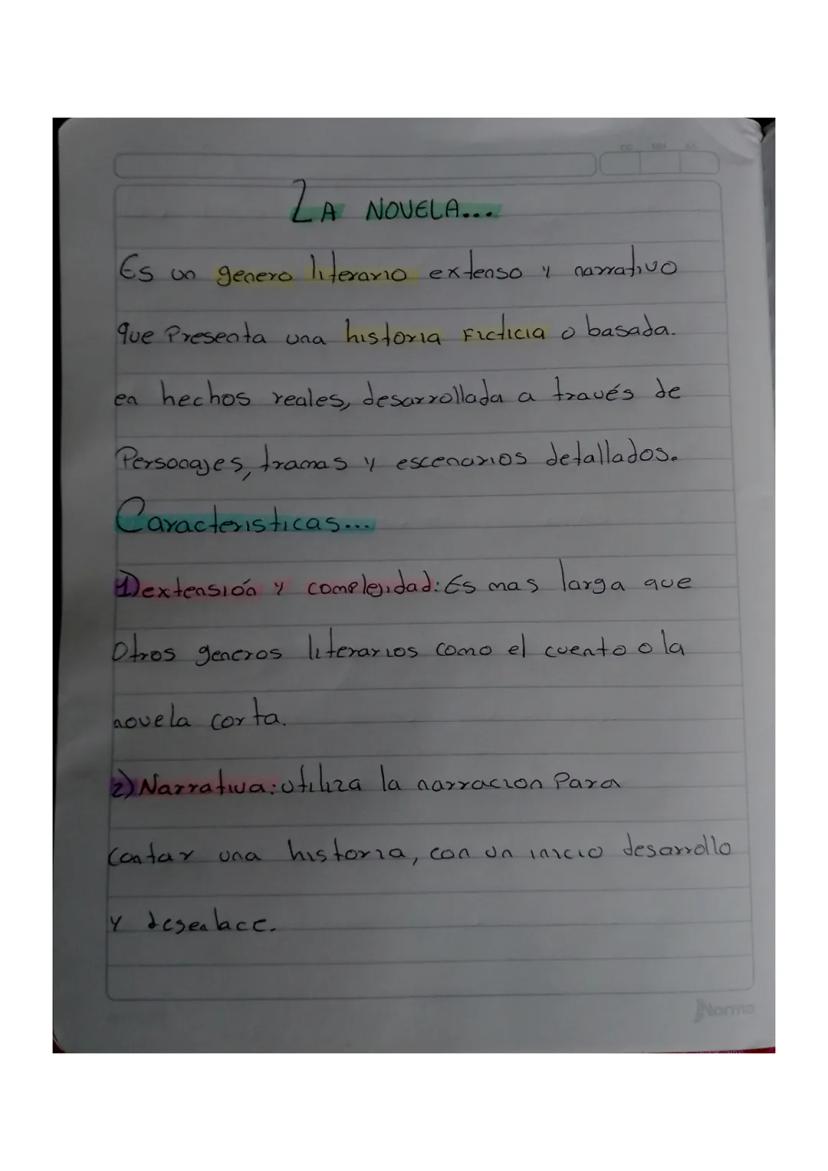 LA NOVELA...
Es un genero literario extenso y narrativo
que Presenta una historia Ficticia o basada.
en hechos reales, desarrollada a través de
Personajes, tramas y escenarios detallados.
Caracteristicas...
1) extensión y complejidad: Es mas larga que
Otros generos literarios como el cuento o la
novela corta.
2) Narrativa: utiliza la narracion Para
Contar una historia, con un inicio desarrollo
y desenlace.
Norma